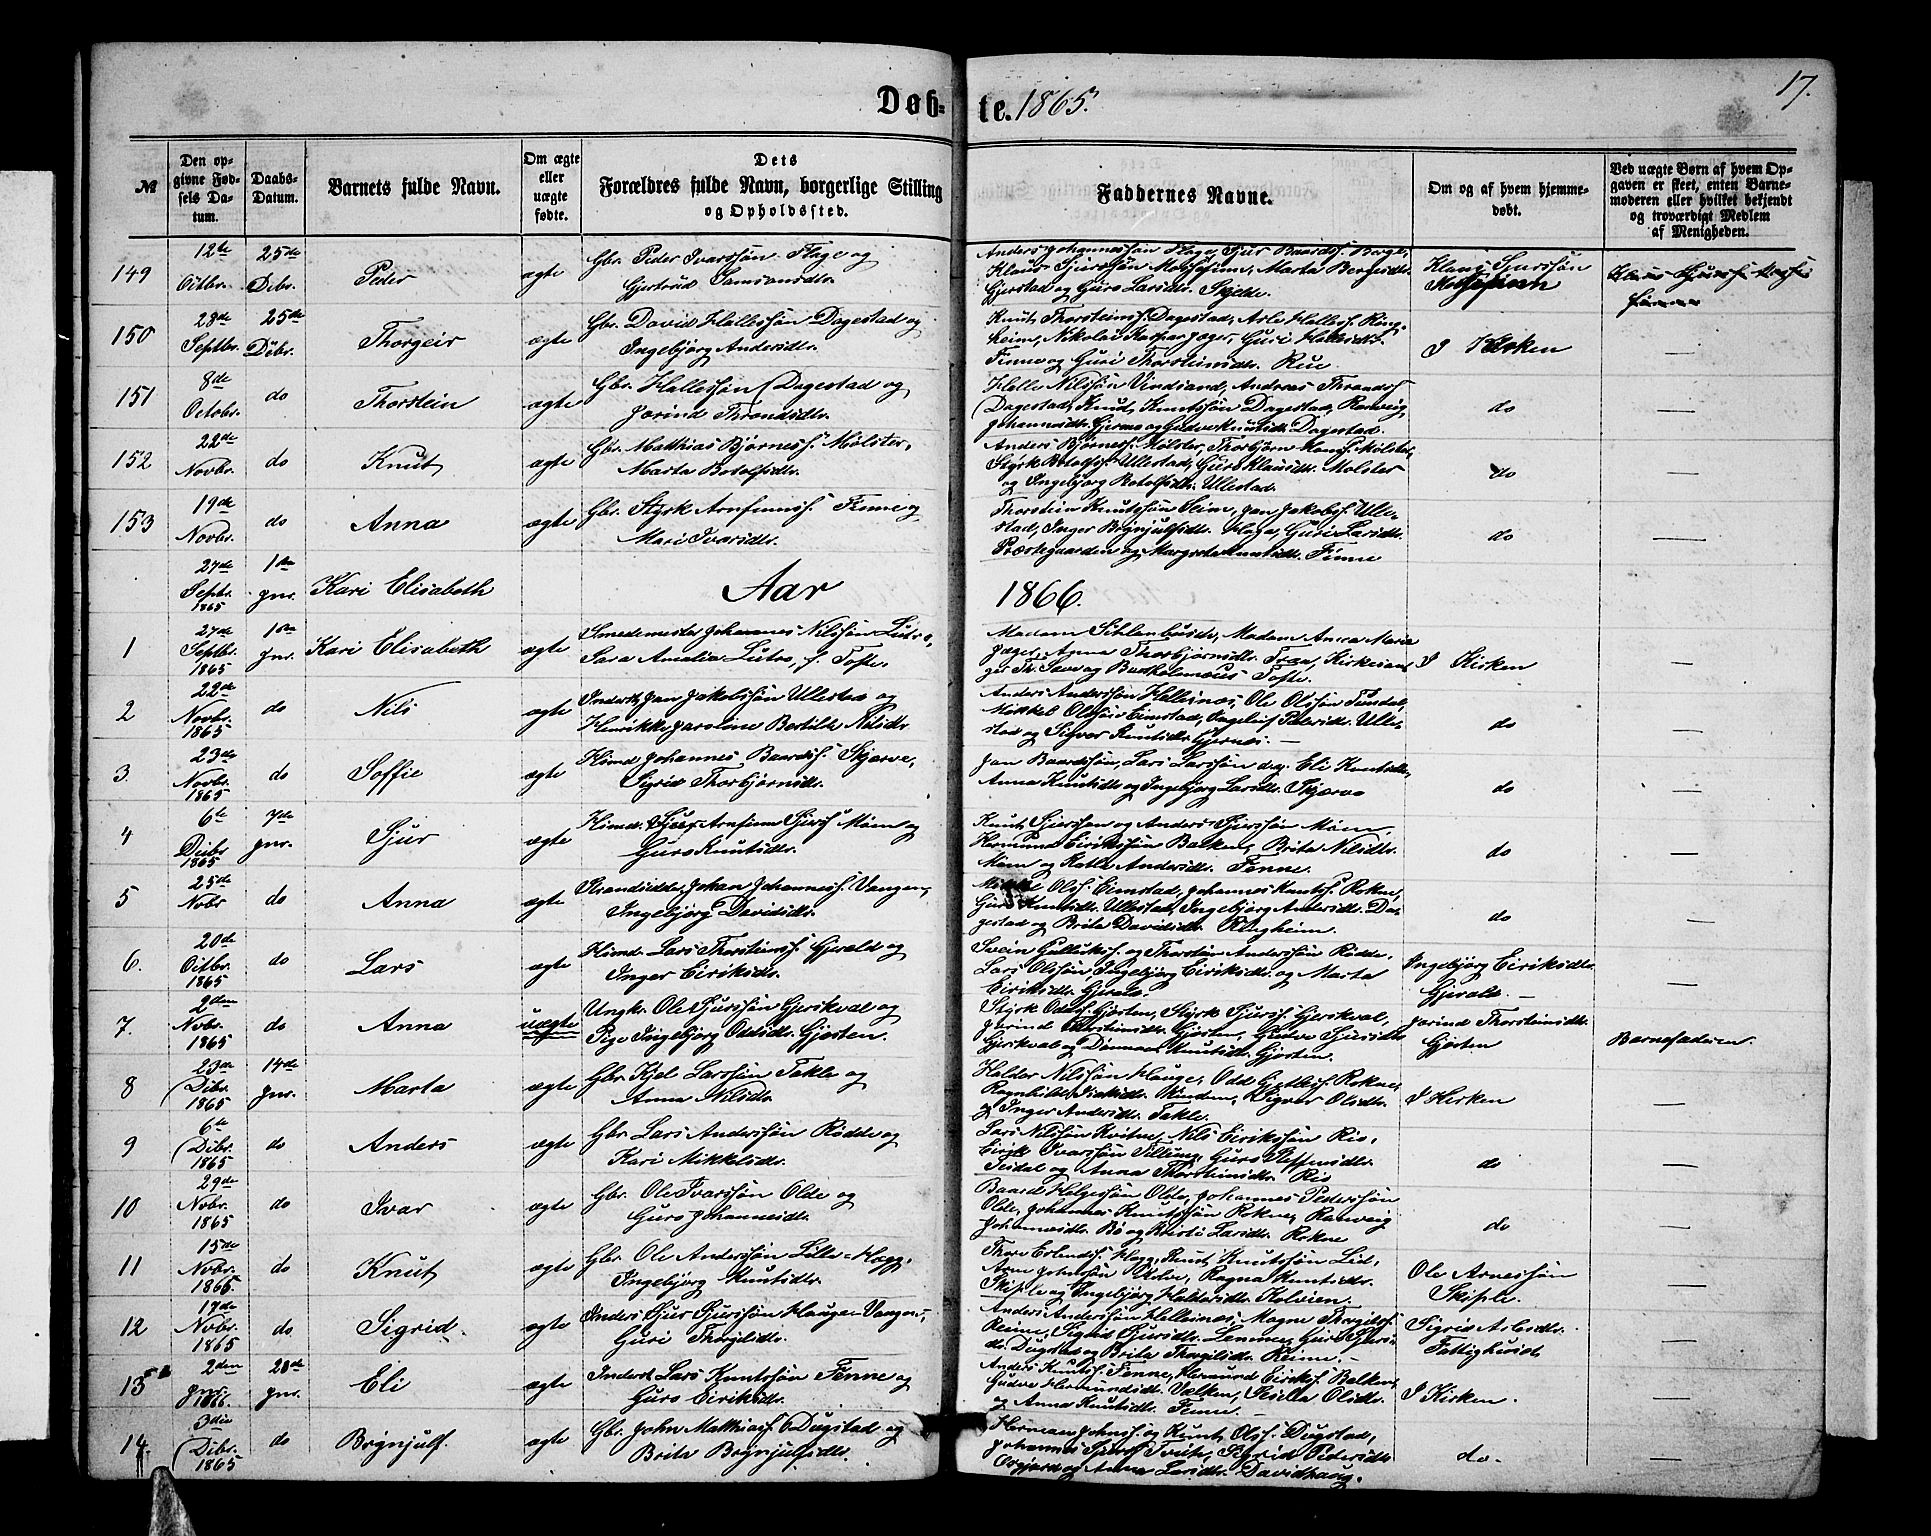 17.
Døb-
te. 1865.
№
Den op-
givne Fød-
sels Da-
tum.
Daabs-
Datum.
Barnets fulde Navn.
Om ægte
eller
uægte
fødte.
Dets
Forældres fulde Navn, borgerlige Stilling
og Opholdssted.
Faddernes Navne.
Om og af hvem hjemme-
døbt.
Ved uægte Børn af hvem Op-
gaven er skeet, enten Barne-
moderen eller hvilket bekjendt
og troværdigt Medlem
af Menigheden.
149
12te
Octbr.
25de
Debr.
Peder
ægte
Gbr. Peder Ivarssøn Flage og
Gjertrud Samsonsdtr.
Anders Johannessøn Flage, Sjur Baards. Berge,
Klaus Sjurssøn Mossefinn, Marta Bergesdtr.
Gjerstad og Guro Larsdtr. Skjelde.
Klaus Sjurssøn
Mossefinn
150
28de
Septbr.
25de
Debr.
Thorgeir
ægte
Gbr. David Hallessøn Dagestad og
Ingebjørg Andersdtr.
Knut Thorsteins. Dagestad, Arle Halles. Ring-
heim, Nikolai Kaspar Jager, Guri Hallesdtr.
Finne og Guri Thorsteinsdtr. Rue.
I Kirken
151
8de
Octobr.
do
Thorstein
ægte
Gbr. Hallessøn Dagestad og
Jorind Throndsdtr.
Halle Nilssøn Vindsand, Andreas Thronds.
Dagestad, Knut Knutssøn Dagestad, Ranveig
Johannesdtr. Gjerme og Gudve Knutsdtr. Dagestad.
do
152
22de
Novbr.
do
Knut
ægte
Gbr. Matthias Bjørnes. Mølster,
Marta Botolfsdtr.
Anders Bjørnes. Mølster, Thorbjørn Mølster,
Styrk Botolfs. Ullestad, Guro Klausdtr. Mølster
og Ingebjørg Botolfsdtr. Ullestad.
do
153
19de
Novbr.
do
Anna
ægte
Gbr. Styrk Arnfinns. Finne og
Mari Ivarsdtr.
Thorstein Knutssøn Seim, Jan Jakobs. Ulle-
stad, Inger Brynjulfsdtr. Flage, Guri Larsdtr.
Præstegaarden og Margreta Knutsdtr. Finne
do
27de
Septr.
1865
1ste
Jnr.
Kari Elisabeth
Aar
1866.
1
27de
Septbr.
1865
1ste
Jnr.
Kari Elisabeth
ægte
Smedemester Johannes Nilssøn Lutro,
Sara Amalia Lutro, f. Tofte.
Madam Anna Maria
Jager, Anna Thorbjørnsdtr. Kirkesan-
ger Th. og Bartholomæus Tofte.
I Kirken
2
22de
Novbr.
1865
do
Nils
ægte
Inderst Jan Jakobssøn Ullestad og
Henrikke Jaroline Bertilde Nilsdtr.
Anders Anderssøn Hallesnæs, Ole Olssøn
Mikkel Olssøn Eimstad, Pedersdtr. Ulle-
stad og Sigver Knutsdtr. Gjernes.
do
3
23de
Novbr.
1865
do
Soffie
ægte
Hsmd Johannes Baards. Skjerve,
Sigrid Thorbjørnsdtr.
Jan Baardssøn, Lars Larssøn og Eli Knutsdtr.,
Anna Knutsdtr. og Ingebjørg Larsdtr. Skjerve
do
4
6te
Debr
1865
7de
Jnr.
Sjur
ægte
Hsmd. Arnfinn Sjurs. Møen og
Guro Knutsdtr.
Knut Sjurssøn og Anders Sjurssøn Møen,
Eirikssøn Bakken, Brita Nilsdtr.
Møen og Andersdtr. Finne.
do
5
25de
Novbr
do
Anna
ægte
Strandsidder Johan Johannes. Vangen,
Ingebjørg Davidsdtr.
Mikkel Ols. Eimstad, Johannes Knuts. Rokne,
Guro Knutsdtr. Ullestad, Ingebjørg Andersdtr. Da-
gestad og Brita Davidsdtr. Ringheim.
do
6.
20de
Octbr.
1865
do
Lars
ægte
Hsmd. Lars Thorsteins. Gjerald og
Inger Eiriksdtr.
Svein Gulleiks. og Thorstein Anderssøn Rødde,
Lars Olssøn, Ingebjørg Eiriksdtr. og Marta
Eiriksdtr. Gjerald.
Ingebjørg Eiriksdtr.
Gjerald.
7.
2den
Nvbr.
1865
do
Anna
uægte
Ungk. Ole Sjurssøn Gjerskval og
Pige Ingebjørg Oddsdtr. Gjøsten.
Styrk Odds. Gjøsten, Styrk Sjurs. Gjerskval,
Jorind Thorsteinsdtr. Gjøsten, Gudve Sjursdtr.
Gjerskval og Knutsdtr. Gjøsten.
Jorind Thorsteinsdtr.
Gjøsten
Barnefaderen.
8
23de
Debr.
1865
14de
Jnr.
Marta
ægte
Gbr. Kjel Larssøn Takle og
Anna Nilsdtr.
Haldor Nilssøn Hauge, Odd Rokne,
Ragnhild Sigver Olsdtr.
og Inger Andersdtr. Takle.
I Kirken
9
6te
Debr.
1865
do
Anders
ægte
Gbr. Lars Anderssøn Rødde og
Kari Mikkelsdtr.
Lars Nilssøn Kvitne, Nils Eirikssøn Rio,
Eirik Ivarssøn Tillung, Guro Steffensdtr.
og Anna Thorsteinsdtr. Rio
do
10
29de
Novbr.
1865
do
Ivar
ægte
Gbr. Ole Ivarssøn Olde og
Guro Johannesdtr.
Baard Helgessøn Olde, Johannes Pederssøn
Olde, Johannes Knutssøn Rokne, Ranveig
Johannesdtr. Bø og Kristi Larsdtr. Rokne
do
11
15de
Novbr.
1865.
do
Knut
ægte
Gbr. Ole Anderssøn Lille-Hægg,
Ingebjørg Knutsdtr.
Thore Erlends. Hægg, Knut Knutssøn Lid,
Arne Johnssøn Ragna Knutsdtr.
Skiple og Ingebjørg Haldorsdtr. Kolvien.
Ole Arnessøn
Skiple.
12
17de
Nvbr.
1865
do
Sigrid
ægte
Inderst Sjur Sjurssøn Hauge-Vangen,
Guri Thorgilsdtr.
Anders Anderssøn Hallesnæs, Magne Thorgils.
Reime, Sigrid Sjursdtr. Lemme, Guro Sjurs-
dtr. Dugstad og Brita Thorgilsdtr. Reime.
Sigrid Arlesdtr.
Fattighuset.
13
2den
Jnr.
1866.
28de
Jnr.
Eli
ægte
Inderst Lars Knutssøn Fenne og
Guro Eiriksdtr.
Anders Knuts. Fenne, Hermund Eiriks. Bakken,
Gudve Hermundsdtr. Vælken, Olsdtr.
og Anna Knutsdtr. Fenne.
I Kirken.
14.
3die
Debr.
1865
do
Brynjulf.
ægte
Gbr. John Matthias. Dugstad og
Brita Brynjulfsdtr.
Johns. og Knut Ols. Dugstad,
Johannes Sjurs. Tvite, Sigrid Pedersdtr.
og Anna Larsdtr. Davidhaug.
do.